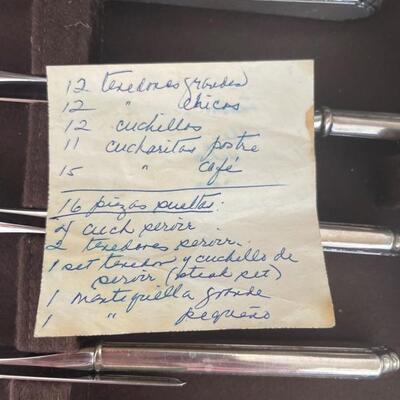 12 tenedores grandes
12 " chicos
12 cuchillos
11 cucharitas postre
15 " café
16 piezas sueltas:
4 cuch servir.
2 tenedores servir.
1 set tenedor y cuchillo de
servir (steak set)
1 mantequilla grande
1 " pequeño